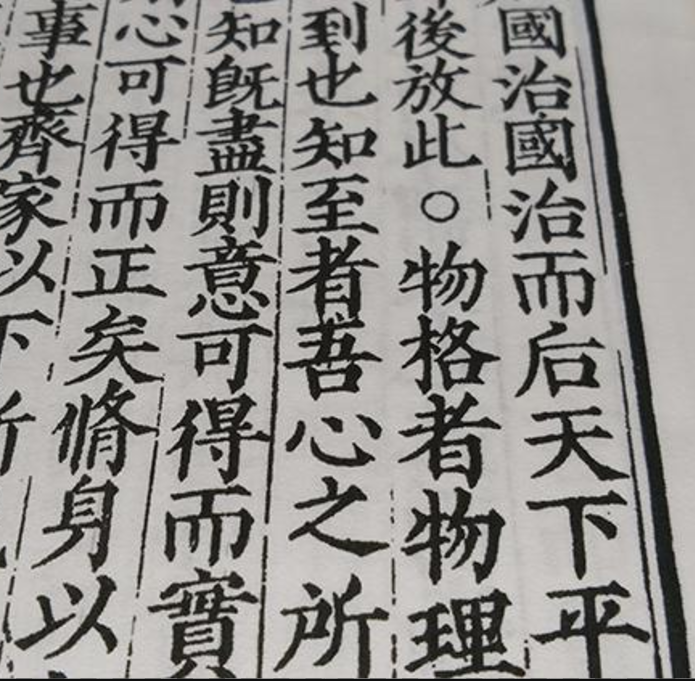 國治國治而后天下平
後放此○物格者物理
到也知至者吾心之所
知旣盡則意可得而實
心可得而正矣脩身以
事也齊家以下所